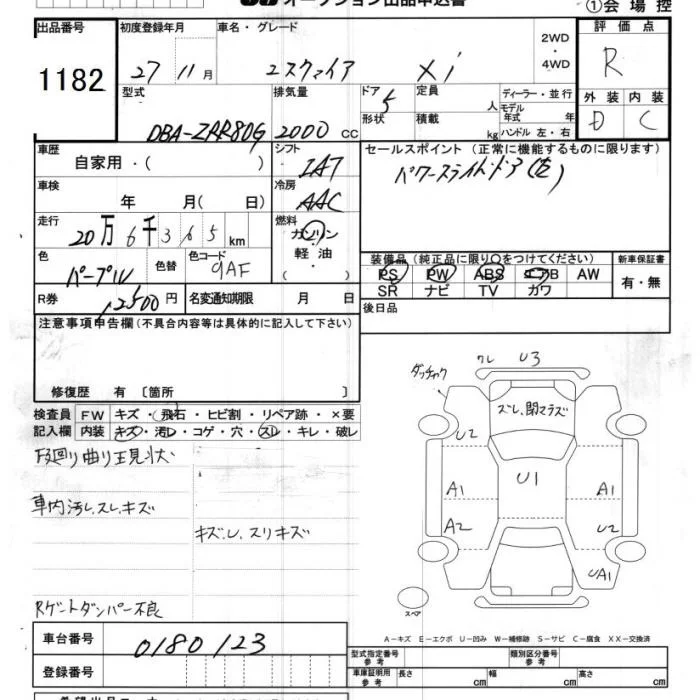 オークション出品申込書
①会場控
出品番号
1182
初度登録年月
27 11月
車名・グレード
エスクァイア Xi
2WD
・
4WD
評価点
R
外装 内装
D C
型式
DBA-ZRR80G
排気量
2000 CC
ドア
5
形状
定員
人
積載
kg
ディーラー・並行
モデル
年式 年
ハンドル 左・右
車歴
自家用・( )
シフト
IAT
セールスポイント (正常に機能するものに限ります)
パワースライドドア(左)
車検
年 月(日)
冷房
AAC
走行
20万6千365km
燃料
ガソリン
軽油
( ・ )
色
パープル
色替
色コード
9AF
装備品 (純正品に限り○をつけてください)
PS PW ABS エアB AW
SR ナビ TV カワ
新車保証書
有・無
R券
12500円
名変通知期限 月 日
後日品
注意事項申告欄(不具合内容等は具体的に記入して下さい)
修復歴 有〔箇所 〕
検査員
記入欄
FW キズ・飛石・ヒビ割・リペア跡・×要
内装 キズ・汚レ・コゲ・穴・スレ・キレ・破レ
下廻り曲り現状
車内汚レ、スレ、キズ
キズ、レ、スリキズ
Rゲートダンパー不良
ダッチャク
ワレ U3
ズレ、閉マラズ
U2
U1
A1 A1
A2 U2
UA1
スペア
A-キズ E-エクボ U-凹み W-補修跡 S-サビ C-腐食 XX-交換済
車台番号
0180123
登録番号
型式指定番号
参考
類別区分番号
参考
車庫証明用
参考
長さ cm
幅 cm
高さ cm